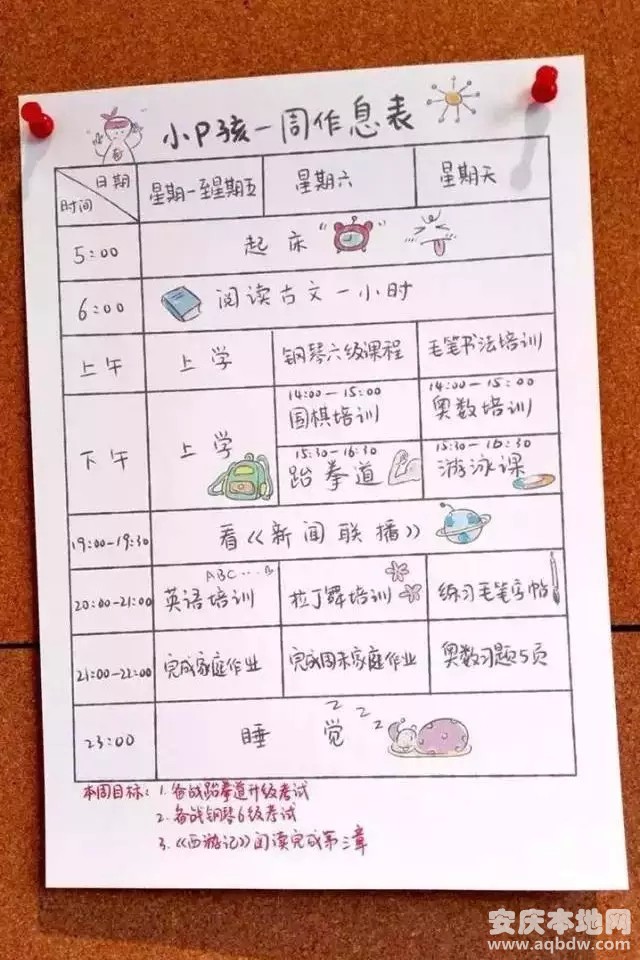 小P孩一周作息表
日期
时间
星期一至星期五 星期六 星期天
5:00 起床
6:00 阅读古文一小时
上午 上学 钢琴六级课程 毛笔书法培训
下午 上学
14:00—15:00 14:00—15:00
围棋培训 奥数培训
15:30—16:30 15:30—16:30
跆拳道 游泳课
19:00-19:30 看《新闻联播》
ABC
20:00-21:00 英语培训 拉丁舞培训 练习毛笔字帖
21:00-22:00 完成家庭作业 完成周末家庭作业 奥数习题5页
23:00 睡觉 z z z
本周目标: 1. 备战跆拳道升级考试
2. 备战钢琴6级考试
3. 《西游记》阅读完成第三章
安庆本地网
www.aqbdw.com